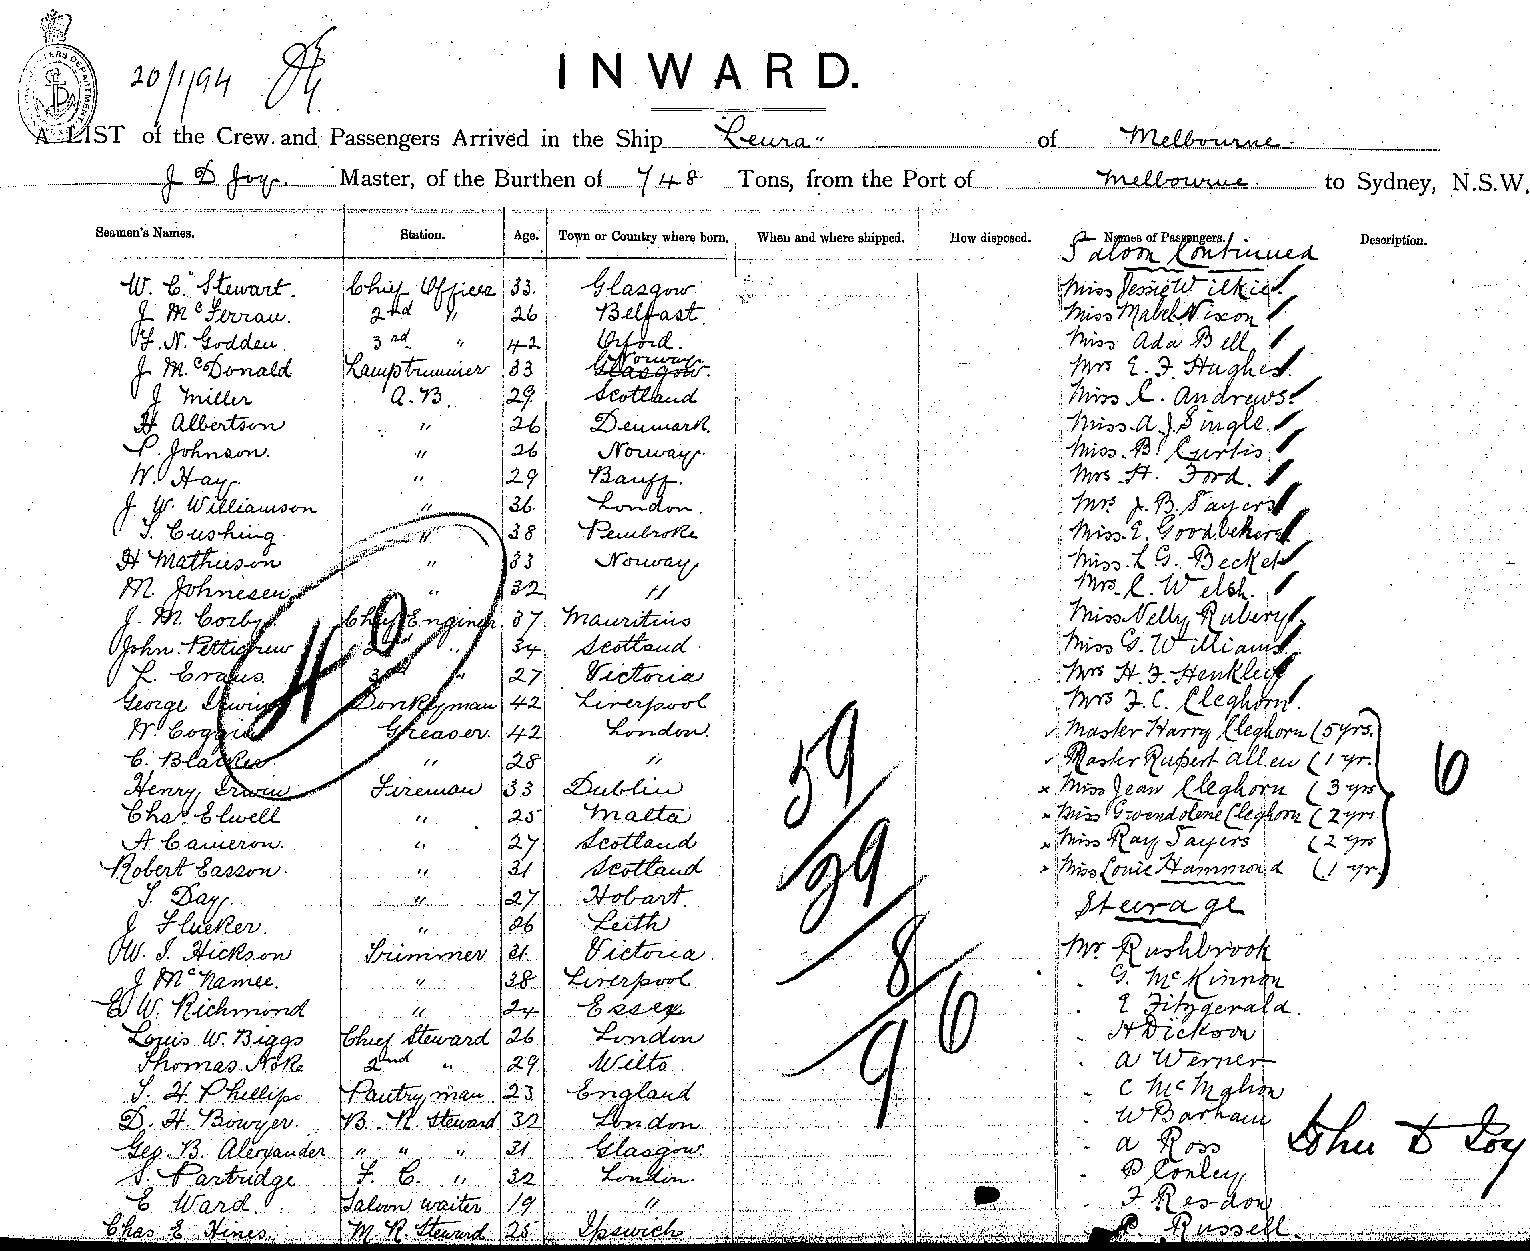 20/1/94
INWARD.
A LIST of the Crew and Passengers Arrived in the Ship Leura" of Melbourne
J D Joy. Master, of the Burthen of 748 Tons, from the Port of Melbourne to Sydney, N.S.W.
Seamen's Names. Station. Age. Town or Country where born. When and where shipped. How disposed. Names of Passengers. Description.
Saloon Continued
W. C. Stewart. Chief Officer 33. Glasgow Miss Jessie Wilkie.
J. McFerran. 2nd " 26 Belfast. Miss Mabel Nixon
F. N. Godden. 3rd " 42 Orford. Miss Ada Bell
J. McDonald Lamptrimmer 33 Glasgow. Norway Mrs E. F. Hughes.
J Miller A.B. 29 Scotland Miss C. Andrews.
H Albertson " 26 Denmark. Miss A. J. Single.
P. Johnson. " 26 Norway. Miss B. Curtis
W. Hay. " 29 Banff. Mrs H. Ford.
J. W. Williamson " 36 London. Mrs J. B. Sayers
T. Cushing " 38 Pembroke Miss E. Goodbehere
H Mathieson " 33 Norway Miss L G. Becket
M. Johnesen " 32 " Mrs C. Welsh.
J. M. Corby. Chief Enginer 37 Mauritius Miss Nelly Rubery
John Pettigrew 2nd " 34 Scotland Miss G. Williams
L. Evans. 3rd " 27 Victoria Mrs H. F. Henkley
George Irwin Donkeyman 42 Liverpool Mrs F. C. Cleghorn.
W Coggin Greaser 42 London. Master Harry Cleghorn (5 yrs.
C. Blacker " 28 " Master Rupert Allen (1 yr.
Henry Irwin Fireman 33 Dublin Miss Jean Cleghorn (3 yrs
Chas. Elwell " 25 Malta Miss Gwendolene Cleghorn (2 yrs
A. Cameron. " 27 Scotland Miss Ray Sayers (2 yrs
Robert Easson. " 31 Scotland Miss Louie Hammond (1 yr.
T. Day. " 27 Hobart. Steerage
J Flucker. " 26 Leith
W. T. Hickson Trimmer 21 Victoria Mr Rushbrook
J McNamee. " 38 Liverpool G. McKinnon
E W. Richmond " 24 Essex E Fitzgerald.
Louis W. Biggs Chief Steward 26 London H Dickson
Thomas 2nd " 29 Wilts A Werner
T. H Phillips Pantryman 23 England C McMahon
D. H. Bowyer. B. R Steward 32 London W Barham
Geo. B. Alexander " " " 31 Glasgow A Ross
S. Partridge F. C. " 32 London. P Conley
E Ward. Saloon waiter 19 " F Resdon
Chas E Hines. M. R. Steward 25 Ipswich P. Russell.
H O
59
39
8
9
6
6
John D Joy